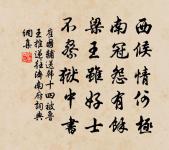 西候情何極
南冠怨有餘
梁王雖好士
不察獄中書
崔國輔送韓十四被魯
王推遞往濟南府詞典
網集